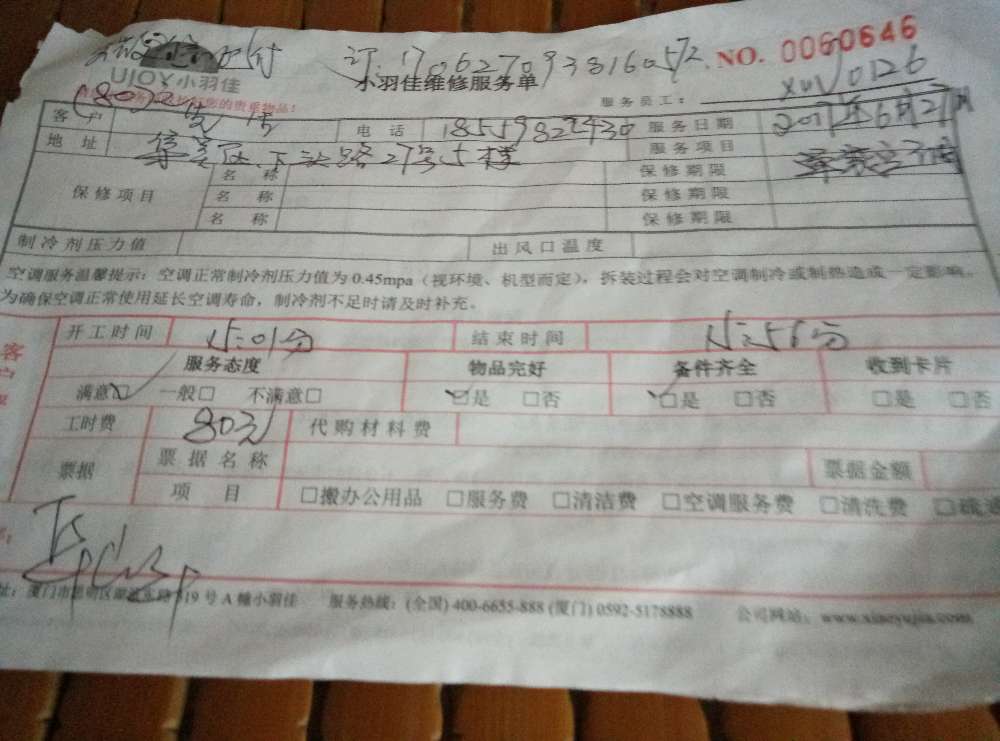 订:170627093816057 2. NO. 0060646
UJOY小羽佳 小羽佳维修服务单
的贵重物品! 服务员工: XUV 0126
客户 电话 18559822430 服务日期 2017年6月27日
地址 集美区下头路27号5楼 服务项目
保修项目 名称 保修期限
名称 保修期限
名称 保修期限
制冷剂压力值 出风口温度
空调服务温馨提示:空调正常制冷剂压力值为0.45mpa(视环境、机型而定),拆装过程会对空调制冷或制热造成一定影响。
为确保空调正常使用延长空调寿命,制冷剂不足时请及时补充。
客户
开工时间 15:01分 结束时间 15:56分
服务态度 物品完好 备件齐全 收到卡片
满意□ 一般□ 不满意□ □是 □否 □是 □否 □是 □否
工时费 80元 代购材料费
票据 票据名称 票据金额
项目 □搬办公用品 □服务费 □清洁费 □空调服务费 □清洗费
址:厦门市思明区 19号A幢小羽佳 服务热线:(全国)400-6655-888(厦门)0592-5178888 公司网站:www.xiaoyujia.com